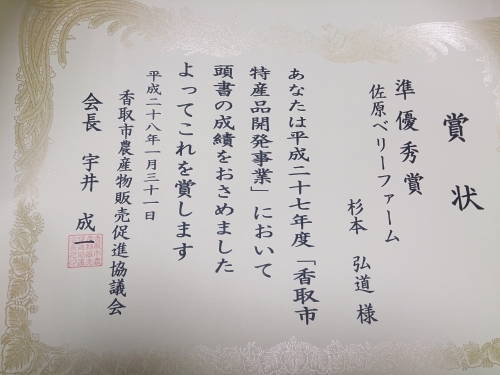 賞状
準優秀賞
佐原ベリーファーム
杉本 弘道 様
あなたは平成二十七年度「香取市
特産品開発事業」において
頭書の成績をおさめました
よってこれを賞します
平成二十八年一月三十一日
香取市農産物販売促進協議会
会長 宇井 成一